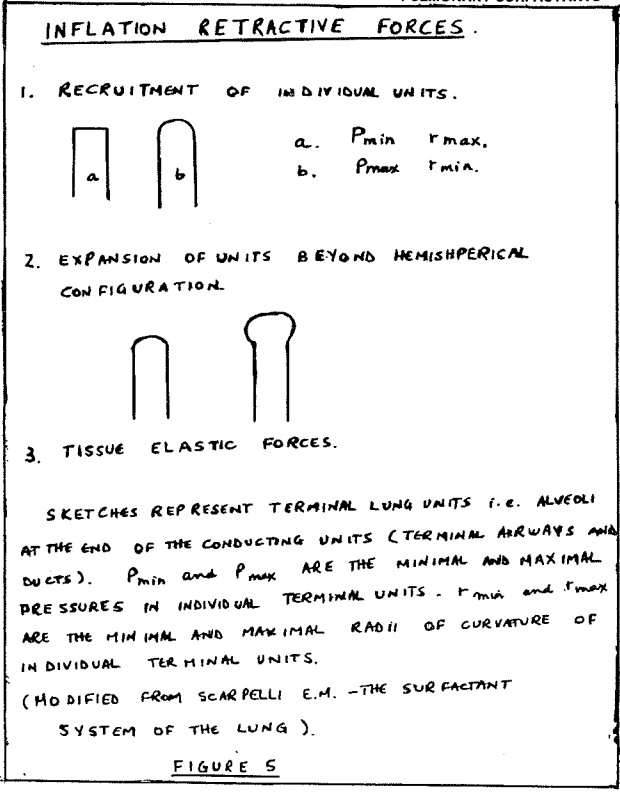 INFLATION RETRACTIVE FORCES.
1. RECRUITMENT OF INDIVIDUAL UNITS.
a b
a. Pmin rmax.
b. Pmax rmin.
2. EXPANSION OF UNITS BEYOND HEMISHPERICAL
CONFIGURATION
3. TISSUE ELASTIC FORCES.
SKETCHES REPRESENT TERMINAL LUNG UNITS i.e. ALVEOLI
AT THE END OF THE CONDUCTING UNITS (TERMINAL AIRWAYS AND
DUCTS). Pmin and Pmax ARE THE MINIMAL AND MAXIMAL
PRESSURES IN INDIVIDUAL TERMINAL UNITS. rmin and rmax
ARE THE MINIMAL AND MAXIMAL RADII OF CURVATURE OF
INDIVIDUAL TERMINAL UNITS.
(MODIFIED FROM SCARPELLI E.M. -THE SURFACTANT
SYSTEM OF THE LUNG).
FIGURE 5